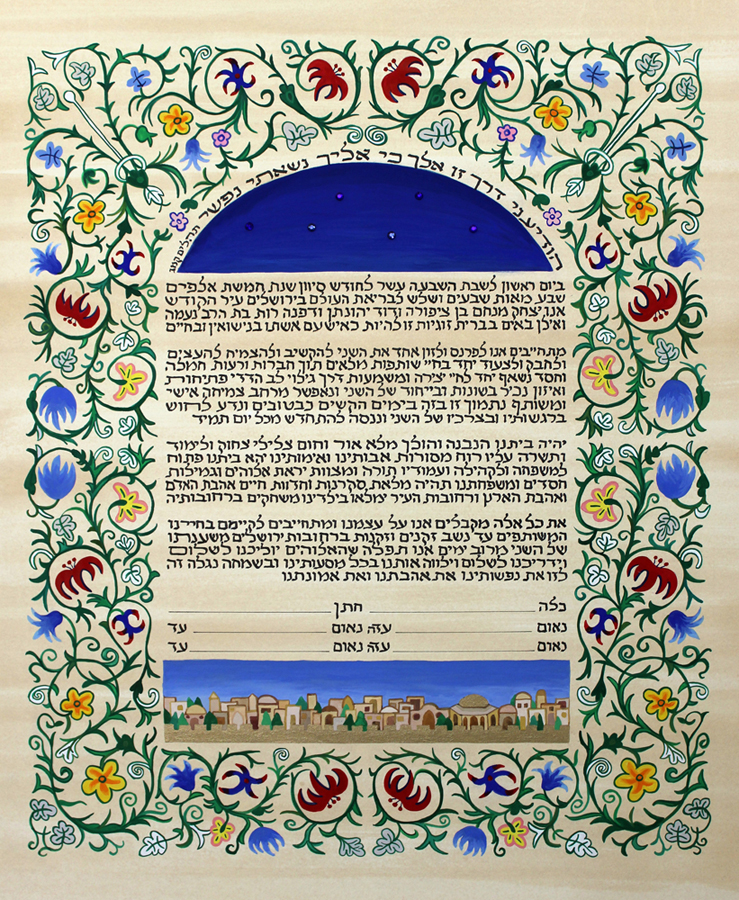 הודיעני דרך זו אלך כי אליך נשאתי נפשי תהלים קמג
ביום ראשון לשבת השבעה עשר לחודש סיוון שנת חמשת אלפים
שבע מאות שבעים ושלש לבריאת העולם בירושלים עיר הקודש
אנו יצחק מנחם בן ציפורה ודוד יהונתן ודפנה רות בת הרב נעמה
ואילן באים בברית זוגיות זו להיות כאיש עם אשתו בנישואין ובחיים
מתחייבים אנו לפרנס ולזון אחד את השני להקשיב ולהצמיח להעצים
ולחבק ולצעוד יחד בחיי שותפות מלאים תוך חברות ורעות חמלה
וחסד נשאף יחד לחיי יצירה ומשמעות דרך גילוי לב הדדי פתיחות
ואיזון נכיל בשונות ובייחוד של השני ונאפשר מרחב צמיחה אישי
ומשותף נתמוך זו בזה בימים הקשים כבטובים ונדע לחוש
ברגשותיו ובצרכיו של השני וננסה להתחדש מכל יום תמיד
יהיה ביתנו הנבנה והולך מלא אור וחום צלילי צחוק ולימוד
ותשרה עליו רוח מסורות אבותינו ואימותינו יהא ביתנו פתוח
למשפחה ולקהילה ועמודיו תורה ומצוות יראת אלוהים וגמילות
חסדים ומשפחתנו תהיה מלאת סקרנות וחדוות חיים אהבת האדם
ואהבת הארץ ורחובות העיר ימלאו בילדינו משחקים ברחובותיה
את כל אלה מקבלים אנו על עצמנו ומתחייבים לקיימם בחיינו
המשותפים עד נשב זקנים וזקנות ברחובות ירושלים משענתו
של השני מרוב ימים אנו תפלה שהאלוהים יוליכנו לשלום
וידריכנו לשלום וילווה אותנו בכל מסעותינו ובשמחה נגלה זה
לזו את נפשותינו את אהבתנו ואת אמונתנו
כלה חתן
נאום עדה נאום עד
נאום עדה נאום עד